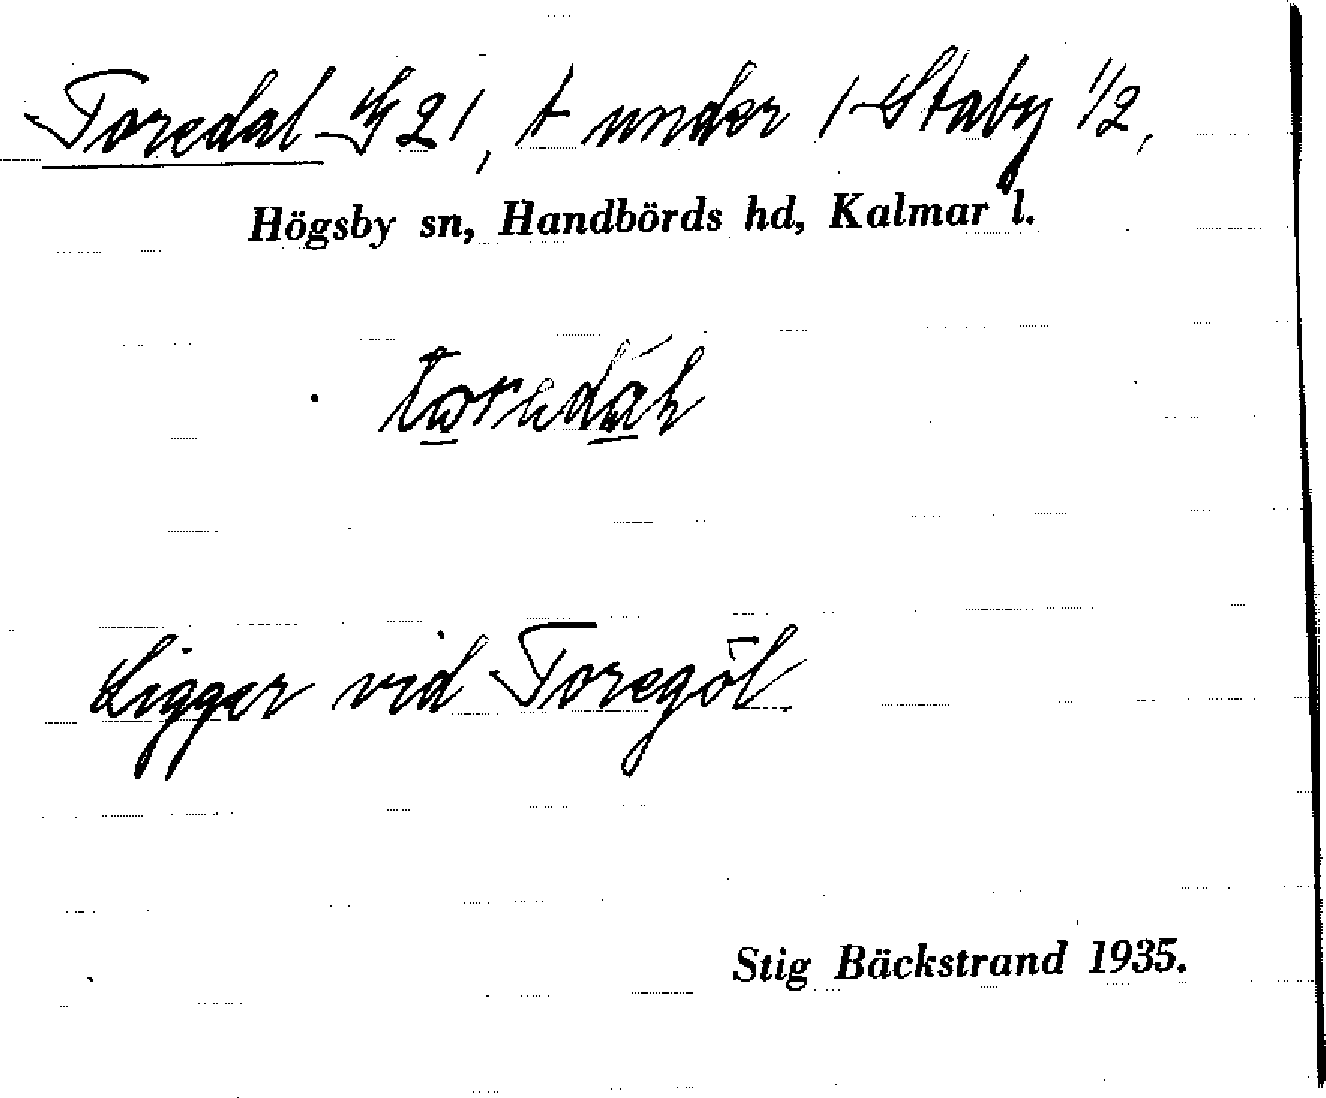 Toredal G 21, t under 1 Staby 1/2,
Högsby sn, Handbörds hd, Kalmar l.
Ligger vid Toregöl
Stig Bäckstrand 1935.